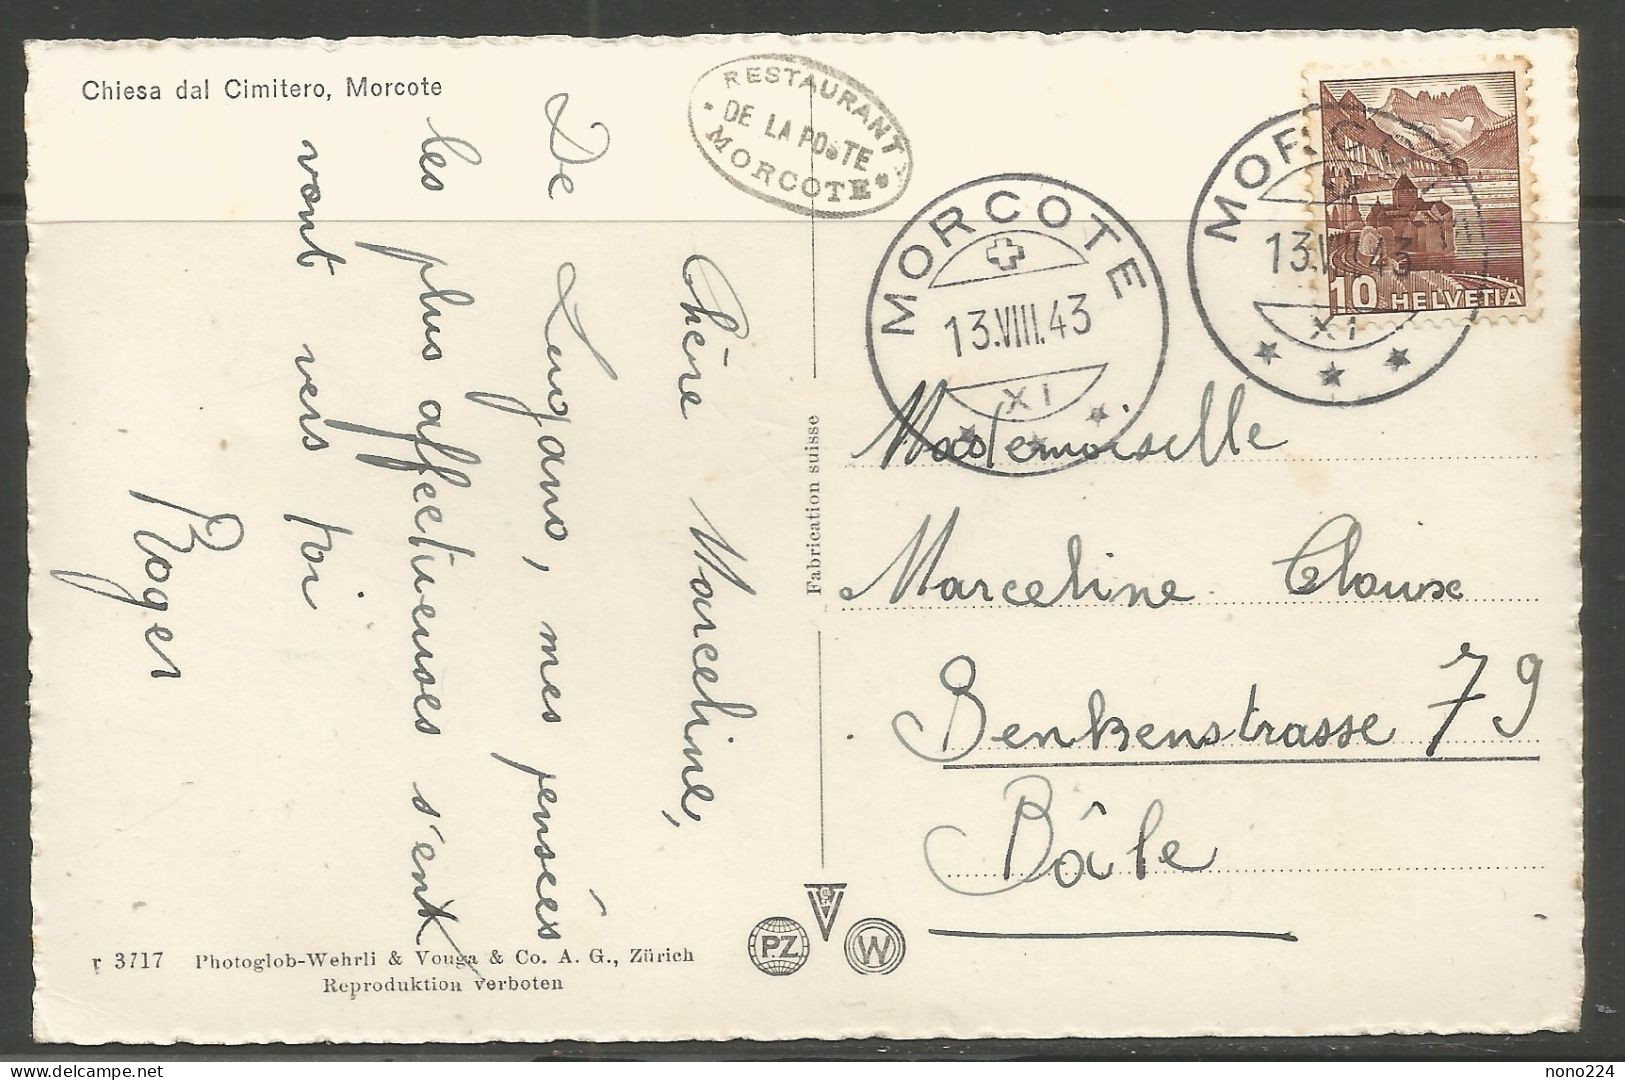 Chiesa dal Cimitero, Morcote
RESTAURANT
DE LA POSTE
MORCOTE
MORCOTE
13.VIII.43
XI
MORCOTE
13.VIII.43
XI
10 HELVETIA
Chère Marceline,
De Lugano, mes pensées
les plus affectueuses s'en
vont vers toi
Roger
Fabrication suisse
Mademoiselle
Marceline Cloux
Benkenstrasse 79
Bâle
r 3717 Photoglob-Wehrli & Vouga & Co. A. G., Zürich
Reproduktion verboten
PZ
V
W
© nono224